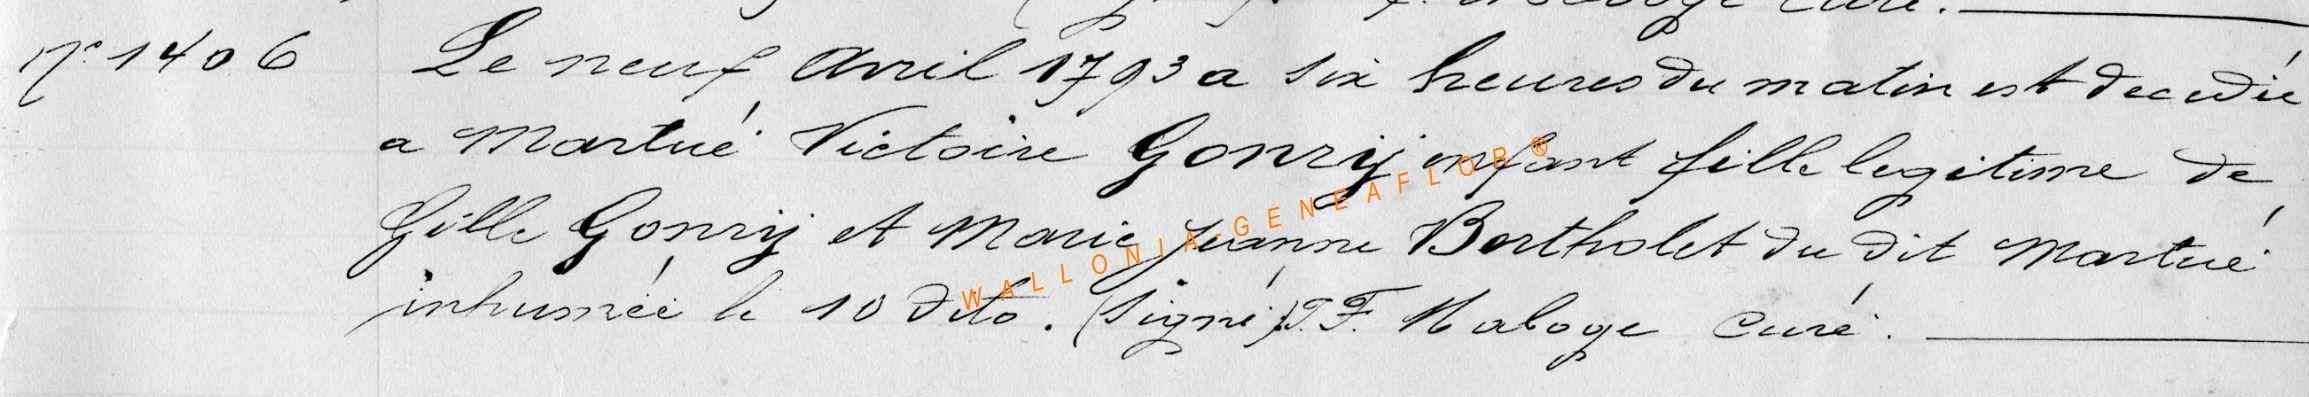 N° 1406 Le neuf Avril 1793 a six heures du matin est decedée
a Martué Victoire Gonry enfant fille legitime de
Gille Gonry et Marie Jeanne Bertholet du dit Martué
inhumée le 10 dito. (Signé) J. F. Maboge Curé.
WALLONIA-GENEAFLOR ®